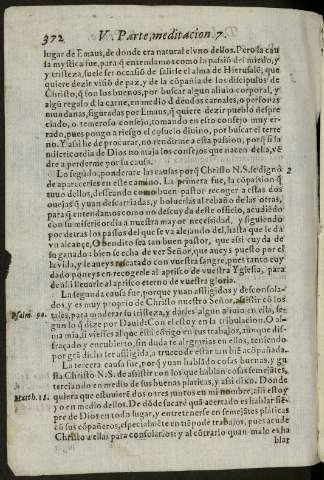 372 V. Parte, meditacion 7.
lugar de Emaus, de donde era natural el vno dellos. Pero la cau
sa mystica fue, para q̃ entendamos como la passiõ del miedo, y
y tristeza, suele ser ocasiõ de salirse el alma de Hierusalẽ, que
quiere dezir visiõ de paz, y de la cõpañia de los discipulos de
Christo, q̃ son los buenos, por buscar algun aliuio corporal, y
algũ regalo d̃ la carne, en medio d̃ deudos carnales, o personas
mundanas, figuradas por Emaus, q̃ quiere dezir pueblo despre
ciado, o temeroso consejo, tomando en esto consejo muy er-
rado, pues pongo a riesgo el cõsuelo diuino, por buscar el terre
no. Y assi he de procurar, no rendirme a esta passion, porq̃ si la
misericordia de Dios no ataja los consejos que nacen della, vẽ
dre a perderme por su causa.
Lo segũdo, ponderare las causas porq̃ Christo N. S. se dignò 2
de aparecerles en este camino. La primera fue, la cõpassion q̃
tuuo dellos, desseando como buen pastor recoger a estas dos
ouejas q̃ yuan descarriadas, y boluerlas al rebaño de las otras,
para q̃ entendamos como no descuyda deste officio, acudiẽdo
con su misericordia a nuestra mayor necessidad, y siguiendo
por detras los passos del que se va alejando del, hasta que le da
vn alcance. O bendito sea tan buen pastor, que assi cuyda de
su ganado: bien se echa de ver Señor, que aueys puesto por el
la vida, y le aueys rescatado con vuestra sangre, pues tanto cuy
dado poneys en recogerle al aprisco de vuestra Yglesia, para
de alli lleuarle al aprisco eterno de vuestra gloria.
La segunda causa fue, porque yuan afligidos y desconsola-
dos, y es muy proprio de Christo nuestro Señor, assistir cõ los
Psalm. 90. tales, para moderar su tristeza, y darles algun aliuio en ella, se-
gun lo q̃ dize por Dauid: Con el estoy en la tribulacion. O al-
ma mia, si viesses al que està cõtigo en tus trabajos, aunque dis-
fraçado y encubierto, sin duda te alegrarias en ellos, teniendo
por grã dicha ser afligida, a trueco de estar tan biẽ acompañada.
La tercera causa fue, porq̃ yuan hablãdo cosas buenas, y gu
sta Christo N. S. de assistir con los que hablan cosas semejãtes,
terciando en medio de sus buenas platicas, y assi dixo. Donde
Matth. 18. quiera que estuuierẽ dos o tres juntos en mi nombre, alli estoy
yo en medio dellos. De dõde sacarè quã acertado es hablar siẽ-
pre de Dios en todo lugar, y entretenerse en semejãtes platicas
cõ sus cõpañeros, especialmẽte en tiẽpo de trabajos, pues acude
Christo a ellas para consolarlos: y al cõtrario quan malo es ha
blar